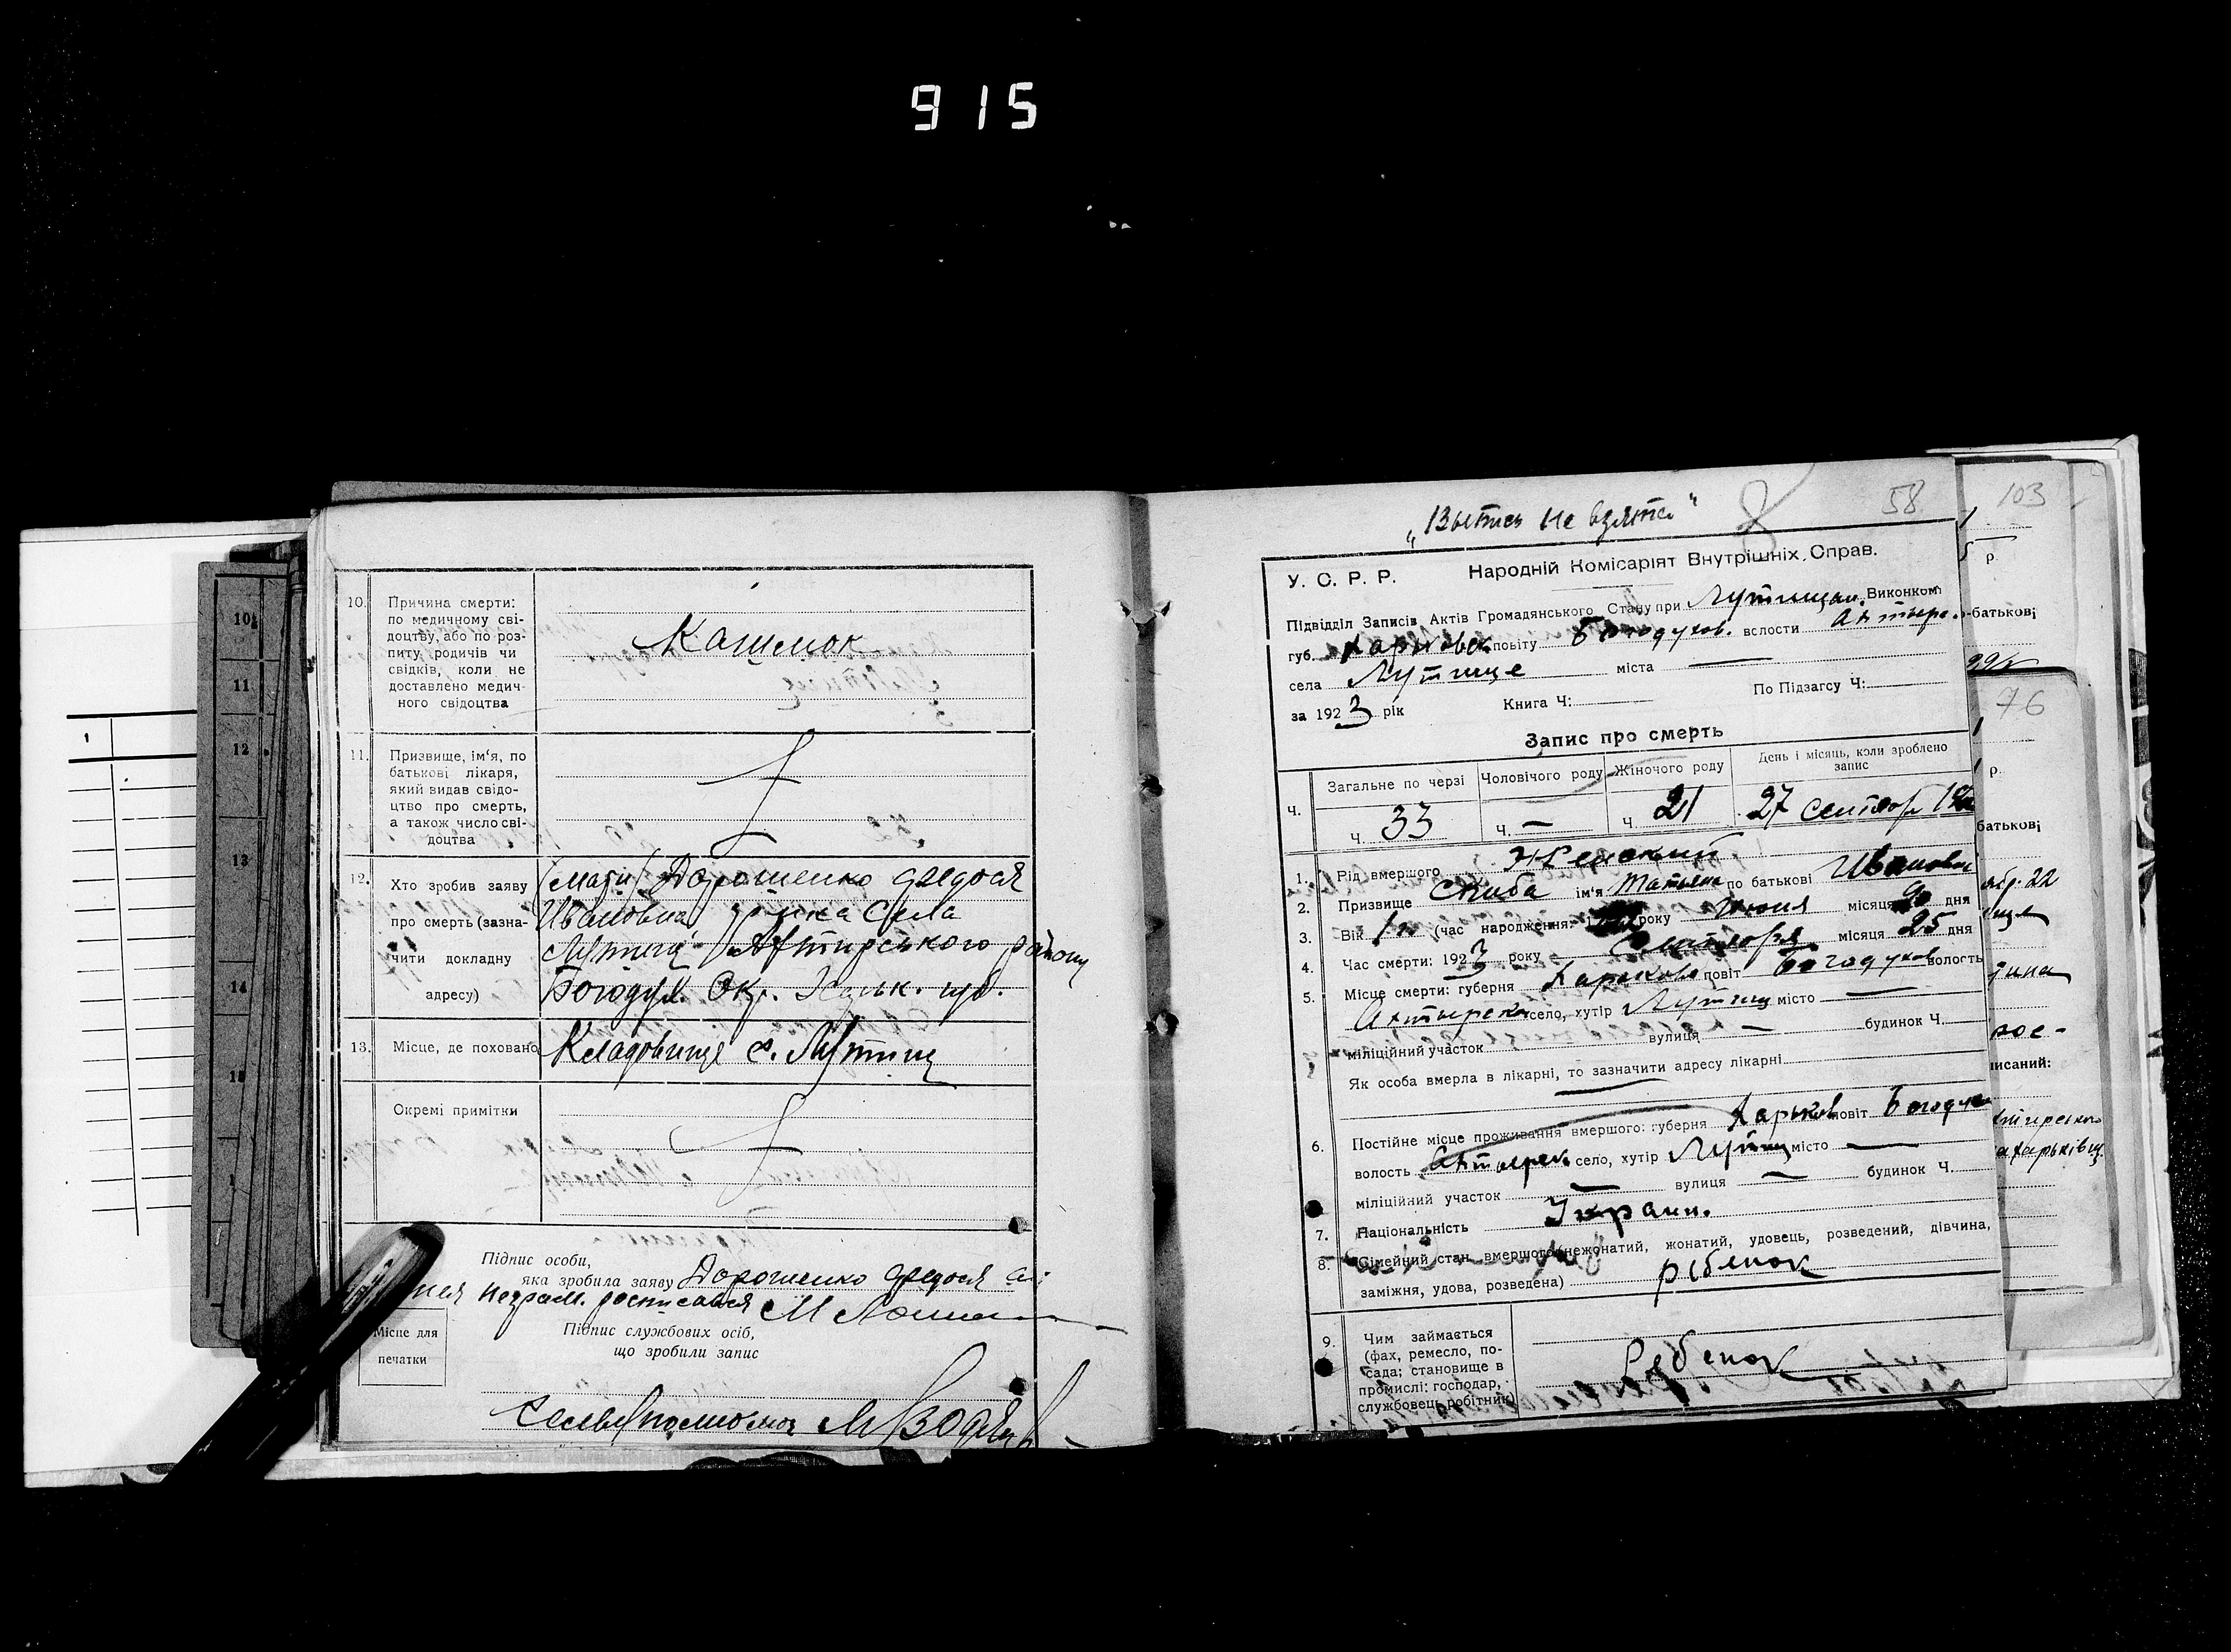 915
10.
Причина смерти:
по медичному сві-
доцтву, або по роз-
питу родичів чи
свідків, коли не
доставлено медич-
ного свідоцтва
Кашлюк
11.
Призвище, ім'я, по
батькові лікаря,
який видав свідо-
цтво про смерть,
а також число сві-
доцтва
12.
Хто зробив заяву
про смерть (зазна-
чити докладну
адресу)
(мати) Дорошенко Федося
Ивановна села
Лутищ Ахтирського району
Богодух. Окр. Харьк. губ.
13.
Місце, де поховано
Кладовище с. Лутищ
Окремі примітки
Підпис особи,
яка зробила заяву Дорошенко Федося а:
неграм. росписався М
Місце для
печатки
Підпис службових осіб,
що зробили запис
10
11
12
13
14
1
58
У. С. Р. Р. Народній Комісаріят Внутрішніх Справ.
Підвідділ Записів Актів Громадянського Стану при Лутищан. Виконком
губ. Харковск повіту Богодухов. вслости Ахтыро.
села Лутище міста —
за 1923 рік Книга Ч: По Підзагсу Ч:
Запис про смерть
Ч.
Загальне по черзі
Чоловічого роду
Жіночого роду
День і місяць, коли зроблено
запис
ч. 33
ч. —
ч. 21
27 сентябр
1. Рід вмершого Женский
2. Призвище Скиба ім'я Татьяна по батькові Ивановн
3. Вік 1 (час народження: року Июня місяця дня
4. Час смерти: 1923 року Сентября місяця 25 дня
5. Місце смерти: губерня Харьков повіт Богодухов волость
Ахтырск село, хутір Лутищ місто —
міліційний участок вулиця — будинок Ч.
Як особа вмерла в лікарні, то зазначити адресу лікарні
6. Постійне місце проживання вмершого: губерня Харьков повіт Богодух
волость Ахтырск село, хутір Лутищ місто —
міліційний участок — вулиця — будинок Ч.
7. Національність Украин.
8. Сімейний стан вмершого (нежонатий, жонатий, удовець, розведений, дівчина,
заміжня, удова, розведена) рібенок
9. Чим займається
(фах, ремесло, по-
сада; становище в
промислі: господар,
службовець, робітник)
Ребенок
103
р.
-батькові
76
р.
батькові
рое-
писаний: